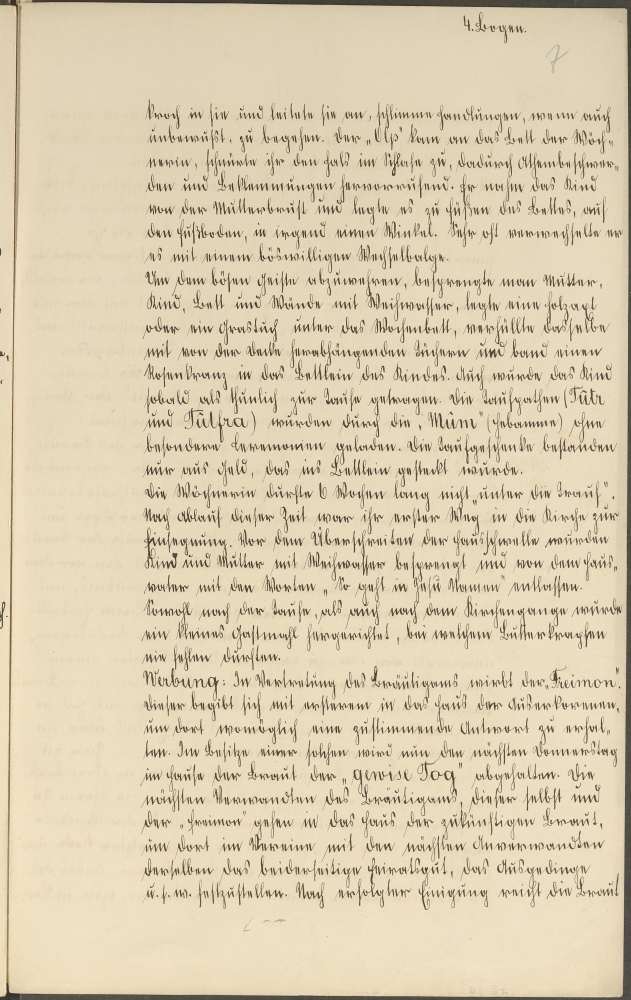 4. Bogen.
7
kroch in sie und leitete sie an, schlimme Handlungen, wenn auch
unbewußt, zu begehen. Der „Olp" kam an das Bett der Wöch-
nerin, schnürte ihr den Hals im Schlafe zu, dadurch Athembeschwer-
den und Beklemmungen hervorrufend. Er nahm das Kind
von der Mutterbrust und legte es zu Füßen des Bettes, auf
den Fußboden, in irgend einen Winkel. Sehr oft verwechselte er
es mit einem böswilligen Wechselbalge.
Um dem bösen Geiste abzuwehren, besprengte man Mutter,
Kind, Bett und Wände mit Weihwasser, legte eine Holzaxt
oder ein Grastuch unter das Wochenbett, verhüllte dasselbe
mit von der Decke herabhängenden Tüchern und band einen
Rosenkranz in das Bettlein des Kindes. Auch wurde das Kind
sobald als thunlich zur Taufe getragen. Die Taufpathen (Tútr
und Tútfra) wurden durch die „Múm" (Hebamme) ohne
besondere Ceremonien geladen. Die Taufgeschenke bestanden
nur aus Geld, das ins Bettlein gesteckt wurde.
Die Wöchnerin durfte 6 Wochen lang nicht „unter die Trauf".
Nach Ablauf dieser Zeit war ihr erster Weg in die Kirche zur
Einsegnung. Vor dem Überschreiten der Hausschwelle wurden
Kind und Mutter mit Weihwasser besprengt und von dem Haus-
vater mit den Worten „So geht in Jesu Namen" entlassen.
Sowohl nach der Taufe, als auch nach dem Kirchengange wurde
ein kleines Gastmahl hergerichtet, bei welchem Butterkrapfen
nie fehlen durften.
Werbung: In Vertretung des Bräutigams wirbt der „Freimon".
Dieser begibt sich mit ersterem in das Haus der Auserkorenen,
um dort womöglich eine zustimmende Antwort zu erhal-
ten. Im Besitze einer solchen wird nun den nächsten Donnerstag
im Hause der Braut der „gewise Tog" abgehalten. Die
nächsten Verwandten des Bräutigams, dieser selbst und
der „Freimon" gehen in das Haus der zukünftigen Braut,
um dort im Vereine mit den nächsten Anverwandten
derselben das beiderseitige Heiratsgut, das Ausgedinge
u. s. w. festzustellen. Nach erfolgter Einigung reicht die Braut